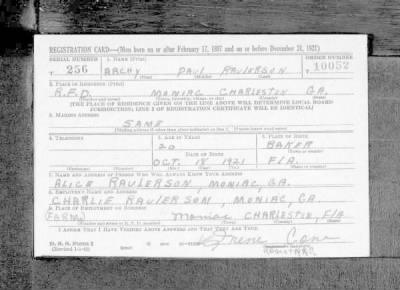 REGISTRATION CARD—(Men born on or after February 17, 1897 and on or before December 31, 1921)
SERIAL NUMBER 1. NAME (Print) ORDER NUMBER
T 256 ARCHY PAUL RAULERSON 10052
(First) (Middle) (Last)
2. PLACE OF RESIDENCE (Print)
R.F.D. MONIAC CHARLESTON GA.
(Number and street) (Town, township, village, or city) (County) (State)
[THE PLACE OF RESIDENCE GIVEN ON THE LINE ABOVE WILL DETERMINE LOCAL BOARD
JURISDICTION; LINE 2 OF REGISTRATION CERTIFICATE WILL BE IDENTICAL]
3. MAILING ADDRESS
SAME
[Mailing address if other than place indicated on line 2. If same insert word same]
4. TELEPHONE 5. AGE IN YEARS 6. PLACE OF BIRTH
20 BAKER
DATE OF BIRTH (Town or county)
OCT. 18 1921 FLA.
(Exchange) (Number) (Mo.) (Day) (Yr.) (State or country)
7. NAME AND ADDRESS OF PERSON WHO WILL ALWAYS KNOW YOUR ADDRESS
ALICE RAULERSON, MONIAC, GA.
8. EMPLOYER'S NAME AND ADDRESS
CHARLIE RAULERSON, MONIAC, GA.
9. PLACE OF EMPLOYMENT OR BUSINESS
(FARM) Moniac CHARLESTON, FLA
(Number and street or R. F. D. number) (Town) (County) (State)
I AFFIRM THAT I HAVE VERIFIED ABOVE ANSWERS AND THAT THEY ARE TRUE.
D. S. S. Form 1
(Revised 1-1-42) (over)
Irene
REGISTRAR